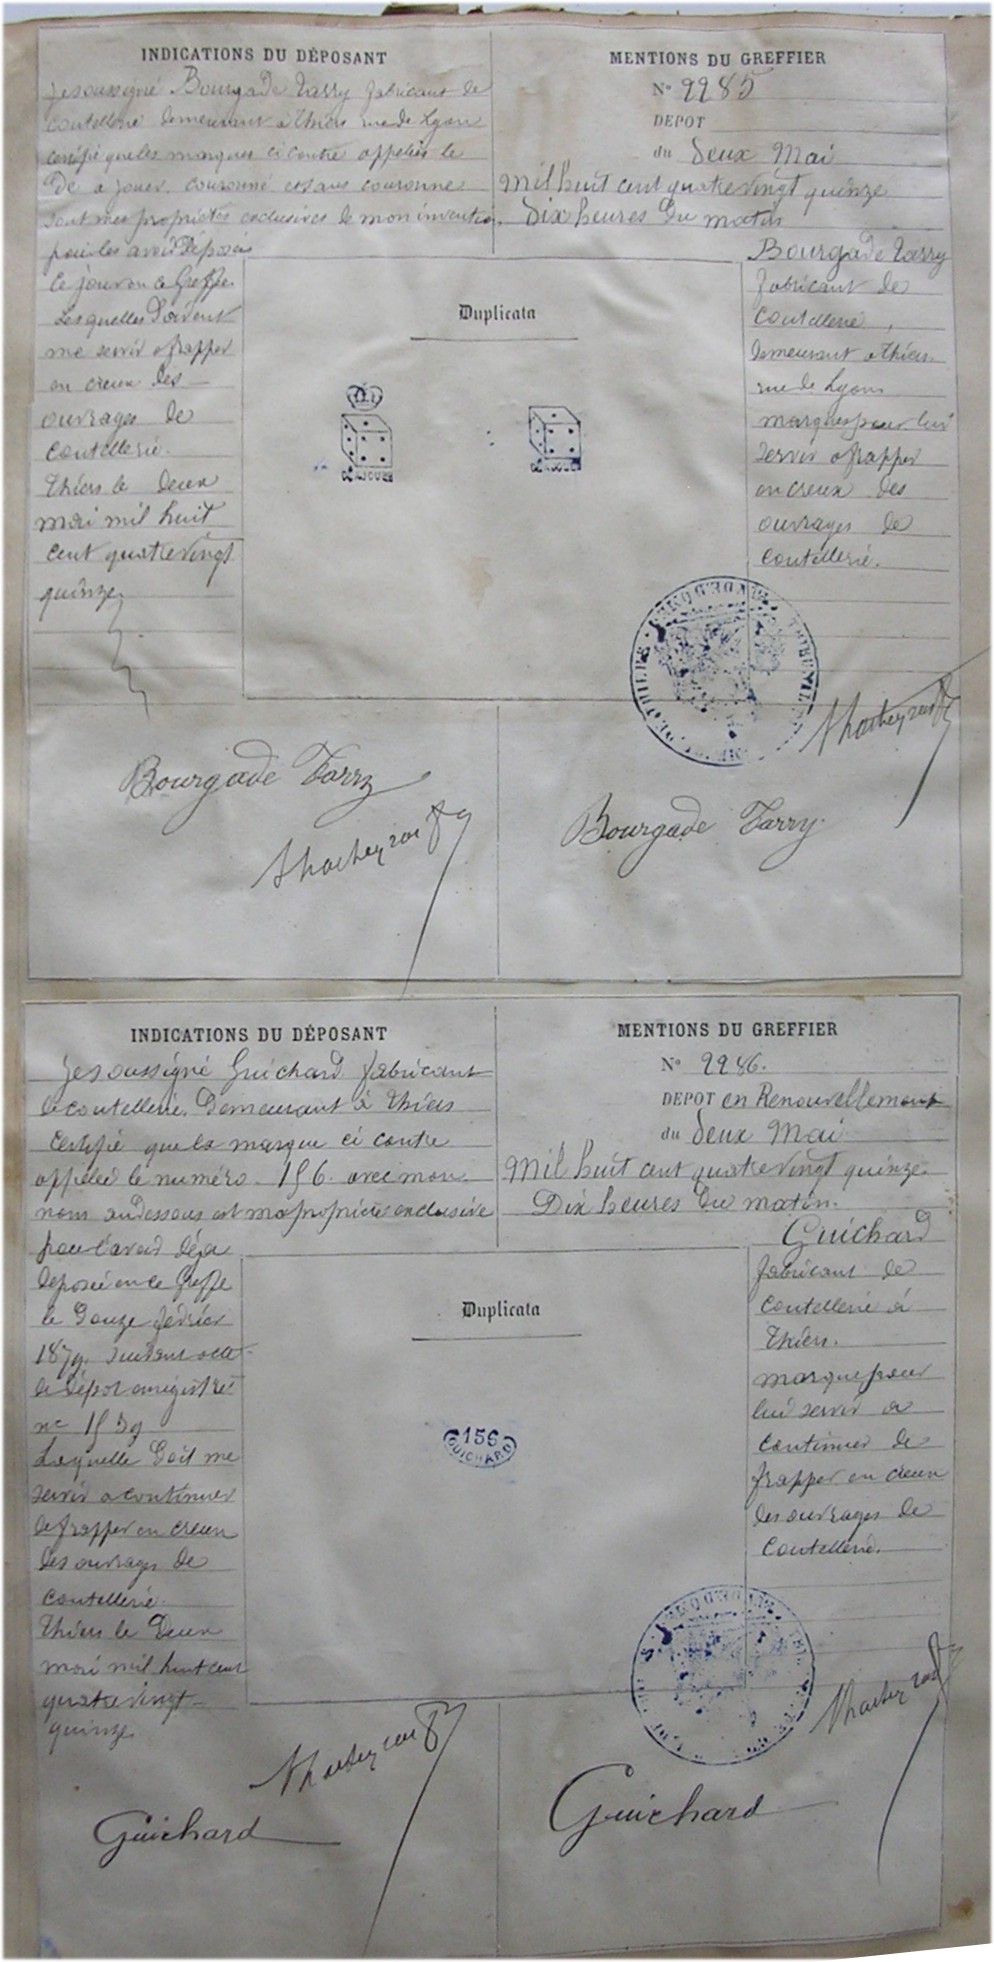 INDICATIONS DU DÉPOSANT
Je soussigné Bourgade Tarry fabricant de
coutellerie demeurant à Thiers rue de Lyon
certifie que les marques ci contre appelées le
Dé a jouer couronné et sans couronne
sont mes propriétés exclusives de mon invention
pour les avoir déposées
ce jour en ce Greffe
Lesquelles doivent
me servir a frapper
en creux des
ouvrages de
coutellerie.
Thiers le Deux
mai mil huit
cent quatre vingt
quinze
MENTIONS DU GREFFIER
N° 2285
DEPOT
du deux Mai
Mil huit cent quatre vingt quinze
dix heures du matin
Bourgade Tarry
fabricant de
coutellerie,
demeurant a Thiers
rue de Lyon
marques pour lui
servir a frapper
en creux des
ouvrages de
coutellerie.
Duplicata
DÉ A JOUER
DÉ A JOUER
Bourgade Tarry
Bourgade Tarry.
INDICATIONS DU DÉPOSANT
Je soussigné Guichard fabricant
de coutellerie. Demeurant à Thiers
Certifie que la marque ci contre
appelée le numéro 156. avec mon
nom au dessous est ma propriété exclusive
pour l'avoir déja
deposée en ce Greffe
le Douze février
1879. suivant acte
de dépot enregistré
n° 1539
Laquelle doit me
servir a continuer
de frapper en creux
des ouvrages de
coutellerie.
Thiers le Deux
mai mil huit cent
quatre vingt
quinze
MENTIONS DU GREFFIER
N° 2286.
DEPOT en Renouvellement
du deux Mai
Mil huit cent quatre vingt quinze.
Dix heures du matin.
Guichard
fabricant de
coutellerie à
Thiers.
marque pour
lui servir a
continuer de
frapper en creux
des ouvrages de
coutellerie.
Duplicata
156
GUICHARD
Guichard
Guichard